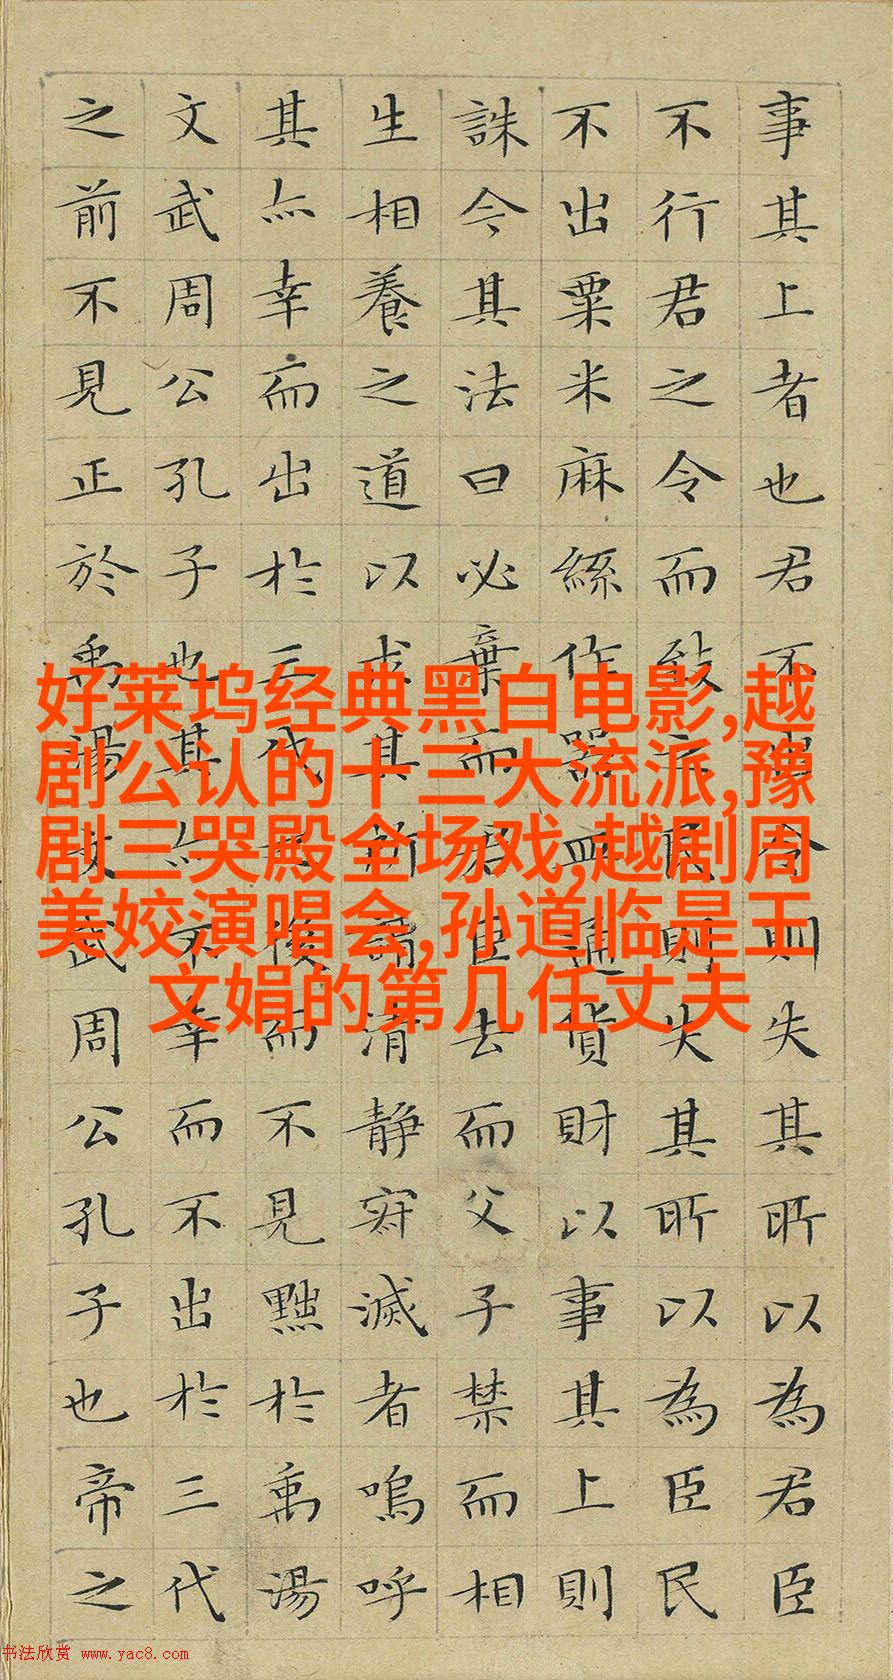 事其上者也君不出令則失其所以為君臣
不行君之令而致之民則失其所以為臣民
不出粟米麻絲作器皿通貨財以事其上則
誅今其法曰必棄而君臣去而父子禁而相
生相養之道以求其所謂清静寂滅者嗚呼
其亦幸而出於三代之後而不見黜於禹湯
文武周公孔子也其亦不幸而不出於三代
之前不見正於禹湯文武周公孔子也帝之
好莱坞经典黑白电影,越
剧公认的十三大流派,豫
剧三哭殿全场戏,越剧周
美姣演唱会,孙道临是王
文娟的第几任丈夫
书法欣赏 www.yac8.com